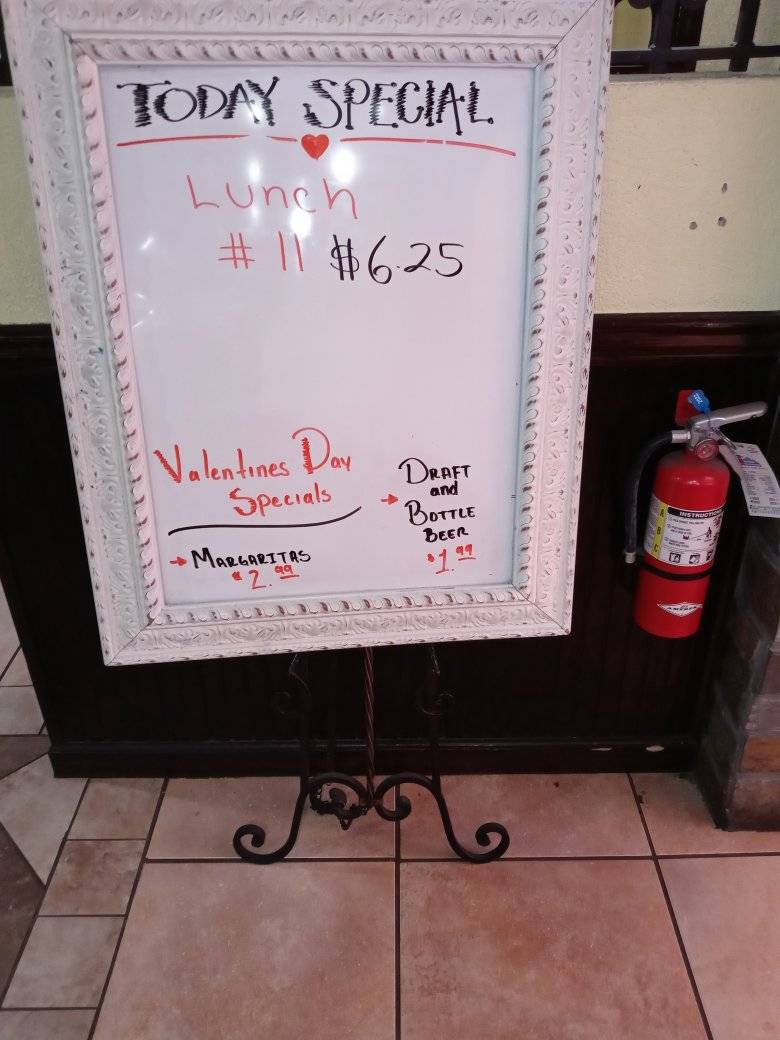 TODAY SPECIAL
Lunch
# 11 $6.25
Valentines Day
Specials
→ MARGARITAS
$2.99
→ DRAFT
and
BOTTLE
BEER
$1.99
INSTRUCTIONS
A
B
C
AMEREX